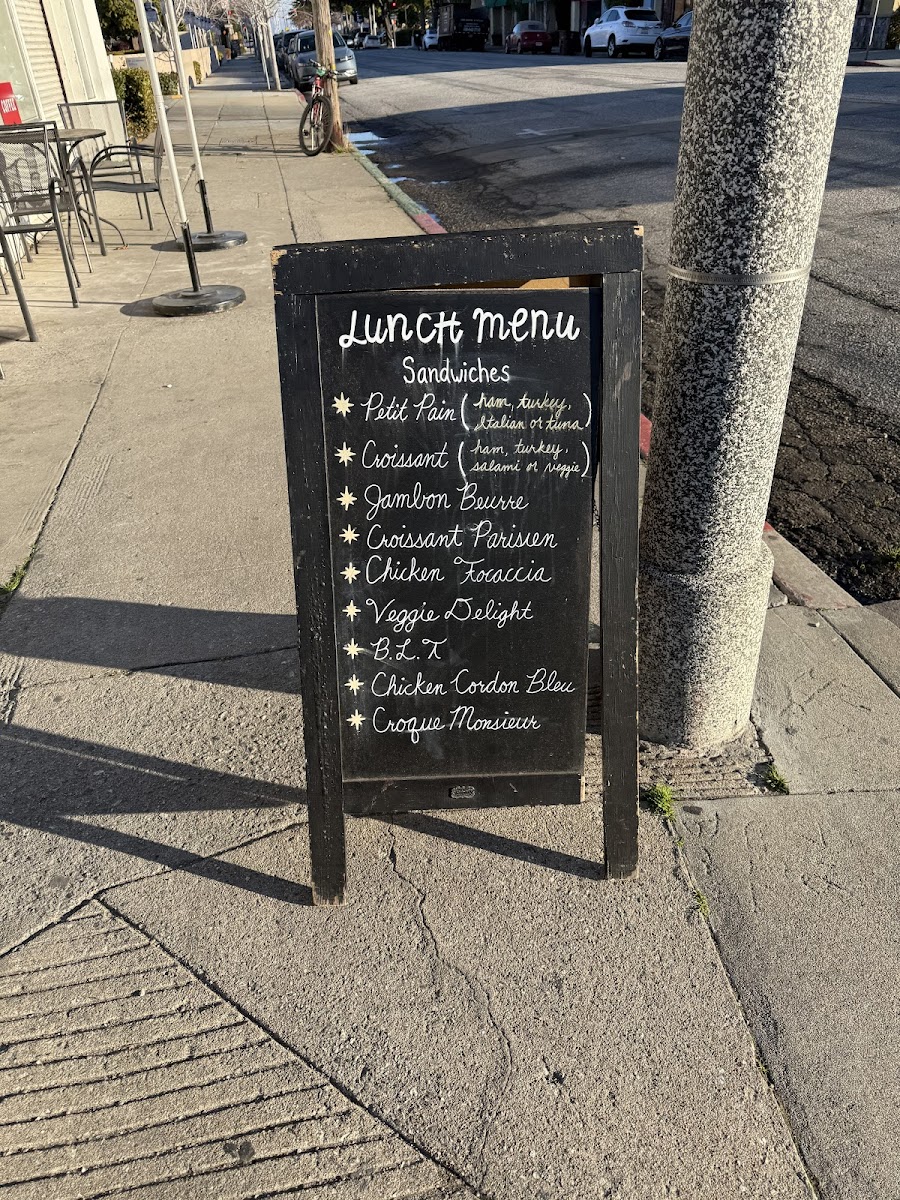 COFFEE
Lunch Menu
Sandwiches
Petit Pain (ham, turkey,
Italian or tuna)
Croissant (ham, turkey,
salami or veggie)
Jambon Beurre
Croissant Parisien
Chicken Focaccia
Veggie Delight
B.L.T
Chicken Cordon Bleu
Croque Monsieur